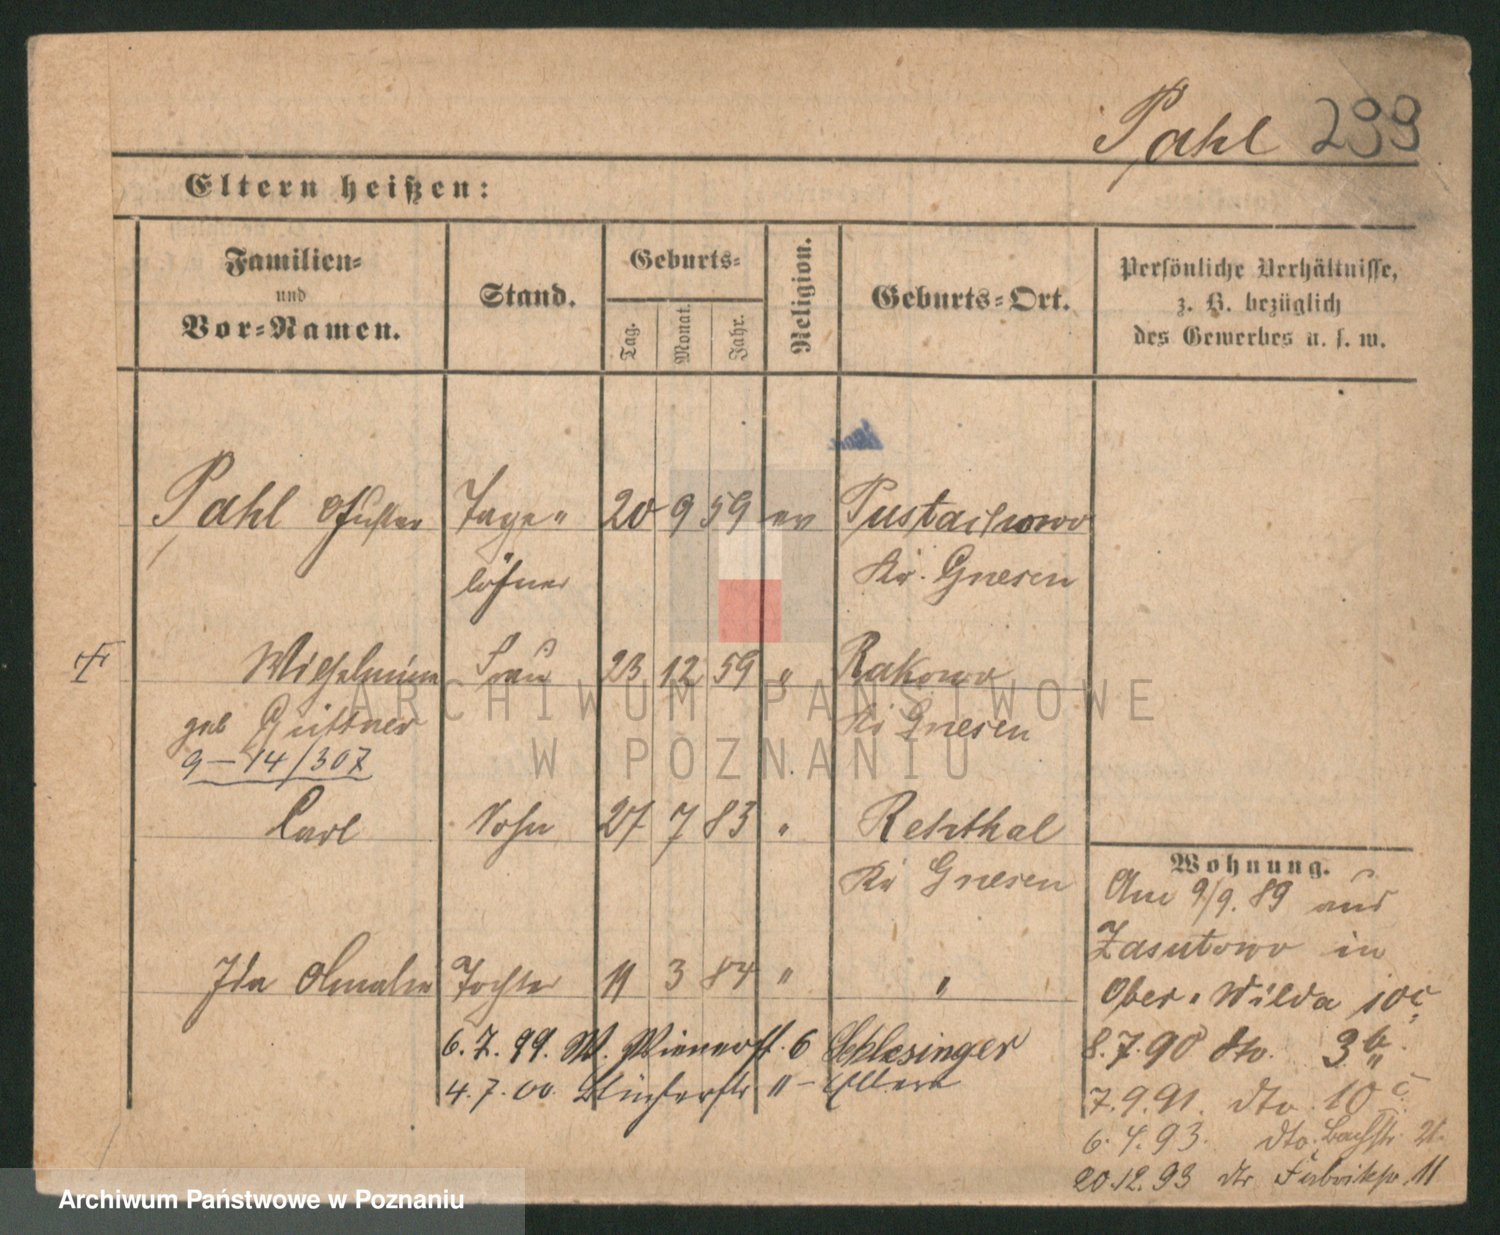 Pahl 299
Eltern heißen:
Familien-
und
Vor-Namen.
Stand.
Geburts-
Tag.
Monat.
Jahr.
Religion.
Geburts-Ort.
Persönliche Verhältnisse,
z. B. bezüglich
des Gewerbes u. s. w.
Pahl Gustav Tage- 20 9 59 ev Pustachowo
löhner Kr. Gnesen
Wilhelmine Frau 23 12 59 " Rakowo
geb Güttner Kr Gnesen
9-14/307
Carl Sohn 27 7 83 " Rehthal
Kr Gnesen
Ida Amalie Tochter 11 3 84 " "
6. 7. 99. W. 6 Schlesinger
4. 7. 00. " - Eltern
Wohnung.
Am 9/9. 89 aus
Zasutowo in
Ober-Wilda 10c
8. 7. 90 dto. 3b
7. 9. 91. dto 10c
6. 4. 93. dto. Bachstr. 21.
20.12.93 dto 11
ARCHIWUM PAŃSTWOWE
W POZNANIU
Archiwum Państwowe w Poznaniu